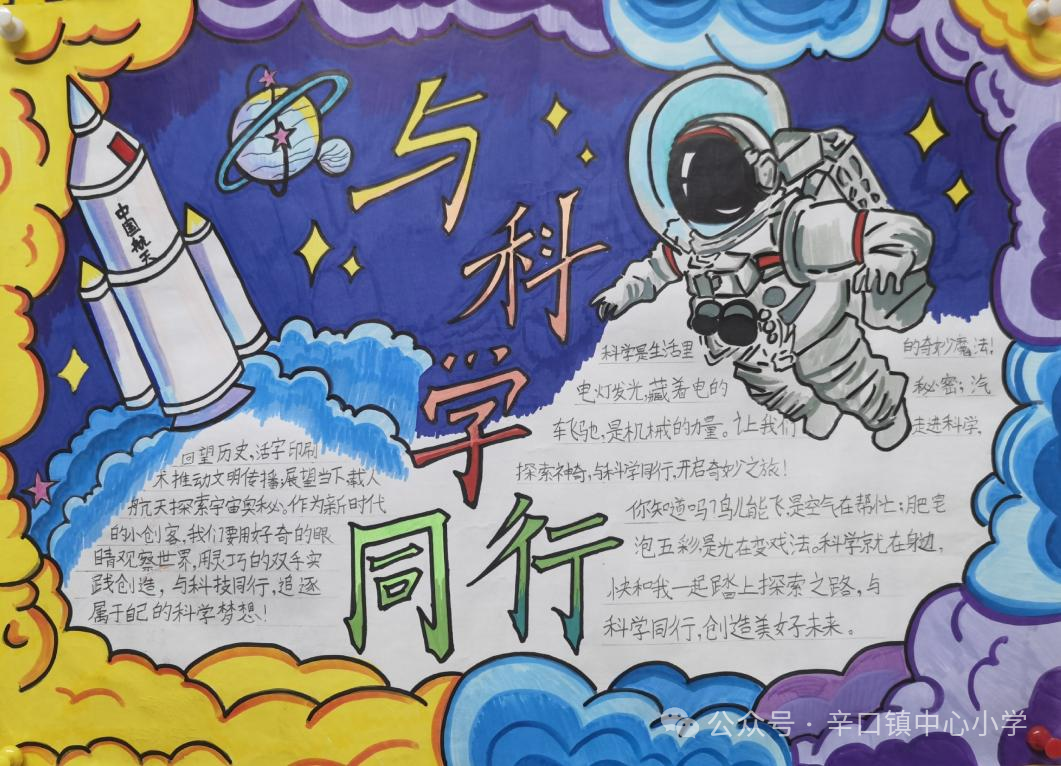 与科学同行
中国航天
回望历史,活字印刷
术推动文明传播,展望当下,载人
航天探索宇宙奥秘。作为新时代
的小创客,我们要用好奇的眼
睛观察世界,用灵巧的双手实
践创造,与科技同行,追逐
属于自己的科学梦想!
科学是生活里的奇妙魔法!
电灯发光,藏着电的秘密;汽
车飞驰,是机械的力量。让我们走进科学,
探索神奇,与科学同行,开启奇妙之旅!
你知道吗?鸟儿能飞,是空气在帮忙;肥皂
泡五彩,是光在变戏法。科学就在身边,
快和我一起踏上探索之路,与
科学同行,创造美好未来。
公众号·辛口镇中心小学